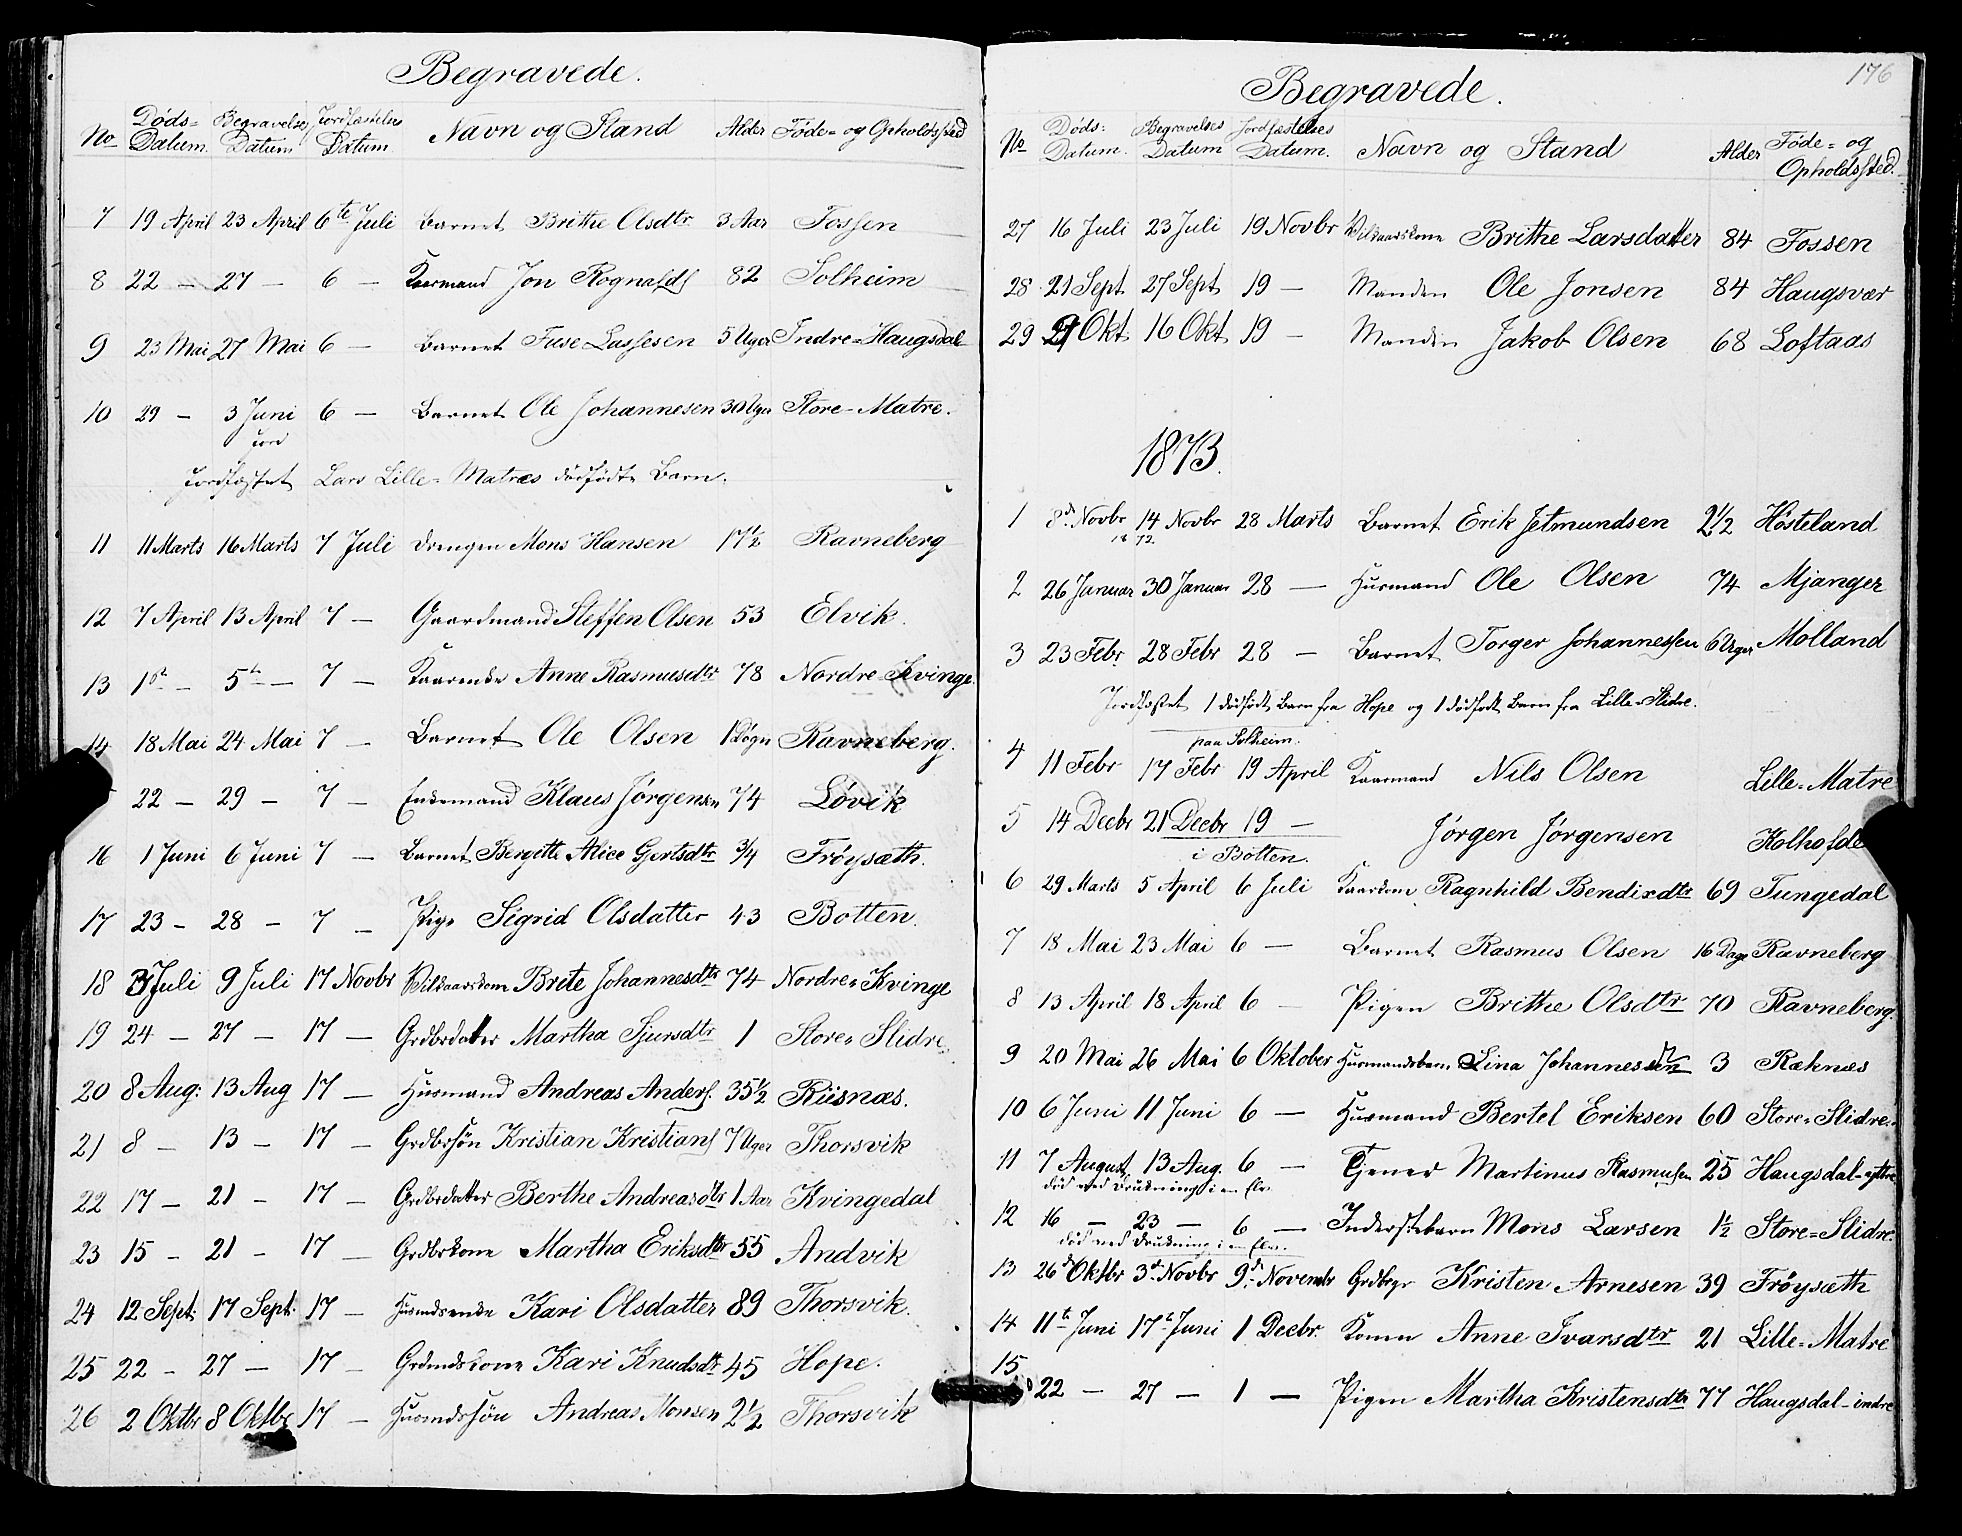 Begravede.
No Døds= Datum. Begravelses Datum Jordfæstelses Datum Navn og Stand Alder Føde= og Opholdssted
7 19 April 23 April 6te Juli Barnet Brithe Olsdtr 3 Aar Fossen
8 22 — 27 — 6 — Kaarmand Jon Rognalds 82 Solheim
9 23 Mai 27 Mai 6 — Barnet Fuse Lassesen 5 Uger Indre=Haugsdal
10 29 — 3 Juni 6 — Barnet Ole Johannesen 30 Uger Store=Matre.
Jord
Jordfæstet Lars Lille=Matres dødfødte Barn.
11 11 Marts 16 Marts 7 Juli Drengen Mons Hansen 17½ Ravneberg
12 7 April 13 April 7 — Gaardmand Steffen Olsen 53 Elvik.
13 1st — 5te — 7 — Kaarenke Anne Rasmusdtr 78 Nordre=Kvinge
14 18 Mai 24 Mai 7 — Barnet Ole Olsen 1 Døgn Ravneberg.
22 — 29 — 7 — Enkemand Klaus Jørgensen 74 Løvik
16 1 Juni 6 Juni 7 — Barnet Bergitte Alice Gertsdtr ¾ Frøysæth.
17 23 — 28 — 7 — Pige Sigrid Olsdatter 43 Botten.
18 3 Juli 9 Juli 17 Novbr Vilkaarskone Brite Johannesdtr 74 Nordre=Kvinge
19 24 — 27 — 17 — Grdbrdatter Martha Sjursdtr 1 Store=Slidre
20 8 Aug: 13 Aug 17 — Husmand Andreas Anders. 35½ Riisnæs.
21 8 — 13 — 17 — Grdbrsøn Kristian Kristians 7 Uger Thorsvik
22 17 — 21 — 17 — Grdbrdatter Berthe Andreasdtr 1 Aar Kvingedal
23 15 — 21 — 17 — Grdbrkone Martha Eriksdtr 55 Andvik
24 12 Sept. 17 Sept. 17 — Husmdsenke Kari Olsdatter 89 Thorsvik.
25 22 — 27 — 17 — Grdmdskone Kari Knudsdtr 45 Hope.
26 2 Oktbr 8 Oktbr 17 — Husmdssøn Andreas Monsen 2½ Thorsvik
176
Begravede.
No Døds: Datum. Begravelses Datum Jordfæstelses Datum. Navn og Stand Alder Føde= og Opholdssted.
27 16 Juli 23 Juli 19 Novbr Vilkaarskone Brithe Larsdatter 84 Fossen
28 21 Sept 27 Sept 19 — Manden Ole Jonsen 84 Haugsvær
29 9 Okt. 16 Okt. 19 — Manden Jakob Olsen 68 Loftaas
1873.
1 8d Novbr 14 Novbr 28 Marts Barnet Erik Jetmundsen 2½ Høsteland
18 72.
2 26 Januar 30 Januar 28 — Husmand Ole Olsen 74 Mjanger
3 23 Febr 28 Febr 28 — Barnet Torger Johannessen 6 Uger Molland
Jordfæstet 1 dødfødt Barn fra Hope og 1 dødfødt Barn fra Lille=Slidre.
paa Solheim.
4 11 Febr 17 Febr 19 April Kaarmand Nils Olsen Lille=Matre
5 14 Decbr 21 Decbr 19 — Jørgen Jørgensen Kolhofde
i Botten.
6 29 Marts 5 April 6 Juli Kaarkone Ragnhild Bendixdtr 69 Tungedal
7 18 Mai 23 Mai 6 — Barnet Rasmus Olsen 16 Dage Ravneberg
8 13 April 18 April 6 — Pigen Brithe Olsdtr 70 Ravneberg.
9 20 Mai 26 Mai 6 Oktober Husmandsbarn Lina Johannesdtr 3 Ræknæs
10 6 Juni 11 Juni 6 — Husmand Bertel Eriksen 60 Store=Slidre.
11 7 August 13 Aug. 6 — Tjener Martinus Rasmusen 25 Haugsdal-yttre
død ved Drukning i en Elv.
12 16 — 23 — 6 — Inderstebarn Mons Larsen 1½ Store=Slidre.
død ved Drukning i en Elv.
13 26d Oktbr 3d Novbr 9d Novembr Grdbrgr Kristen Arnesen 39 Frøysæth
14 11te Juni 17te Juni 1 Decbr. Konen Anne Ivarsdtr 21 Lille=Matre
15. 22 — 27 — 1 — Pigen Martha Kristensdtr 77 Haugsdal-indre